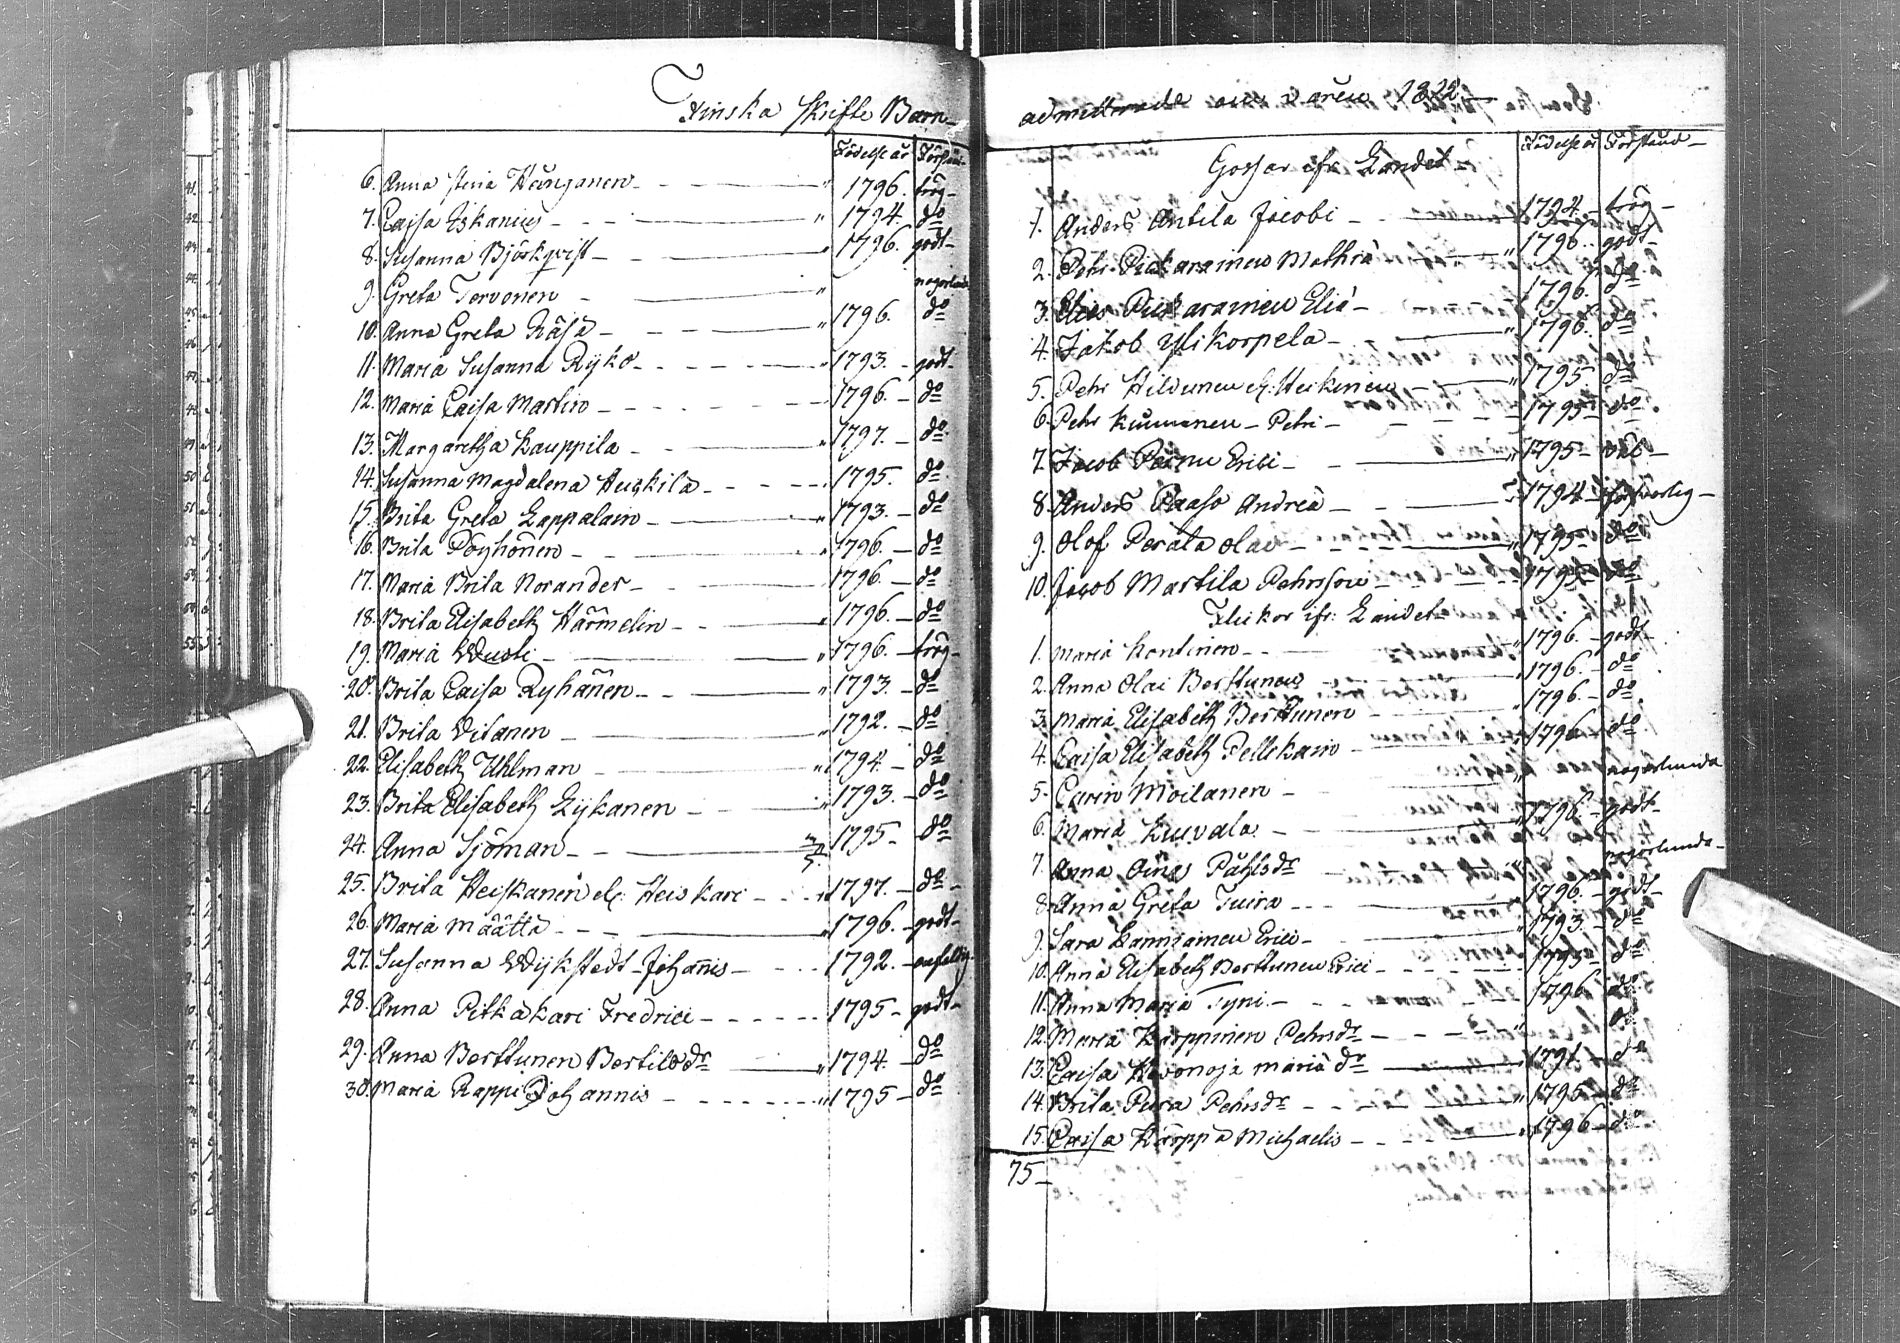 Finska Skrifte Barn
Födelse år
6. Anna Stina Hänganen 1796. trög
7. Caisa Iskanius 1794. do
8. Susanna Björkqvist 1796. godt
9. Greta Tervonen
10. Anna Greta Käsä 1796. do
11. Maria Susanna Ryko 1793. godt
12. Maria Caisa Martin 1796. do
13. Margaretha Kauppila 1797. do
14. Susanna Magdalena Huskila 1795. do
15. Brita Greta Lappalain 1793. do
16. Brita Pöyhönen 1796. do
17. Maria Brita Norander 1796. do
18. Brita Elisabeth Härmelin 1796. do
19. Maria 1796. trög
20. Brita Caisa Ryhänen 1793. do
21. Brita Vitanen 1792. do
22. Elisabeth Uhlman 1794. do
23. Brita Elisabeth Lykanen 1793. do
24. Anna Sjöman 1795 do
25. Brita Heiskanen el. Heiskari 1797. do
26. Maria Määttä 1796. godt
27. Susanna Wijkstedt Johannis 1792.
28. Anna Pitkäkari Fredrici 1795 godt
29. Anna Berttunen Bertilsdr 1794. do
30. Maria Rappe Johannis 1795 do
admitterade våren 1812
Gossar ifr. Landet Födelse år Förstånd
1. Anders Antila Jacobi 1794 trög
2. Pehr Mathiæ 1796. godt
3. Eliæ 1796. do
4. Jakob Ylikorpela 1796. do
5. Pehr Hildunen el. Heikinen 1795. do
6. Pehr Kinnunen Petri 1795 do
7. Jacob Pernu Erici 1795
8. Anders Paaso Andreæ 1794
9. Olof Perätä Olai 1795 do
10. Jacob Martila Pehrsson 1795 do
Flickor ifr. Landet
1. Maria Kontinen 1796. godt
2. Anna Olai Berttunen 1796. do
3. Maria Elisabeth Berttunen 1796. do
4. Caisa Elisabeth Pellekain 1796 do
5. Carin Moilanen någorlunda
6. Maria Kuivala 1796. godt
7. Anna Oinas Påhlsdr någorlunda
8. Anna Greta Tuira 1796. godt
9. Sara Erici 1793. do
10. Anna Elisabeth Berttunen Erici 1795 do
11. Anna Maria Tyni 1796 do
12. Maria Karppinen Pehrsdr do
13. Caisa Kivonoja Mariædr do
14. Brita Pehrsdr 1795 do
15. Caisa Kärppä Michaelis 1796 do
75